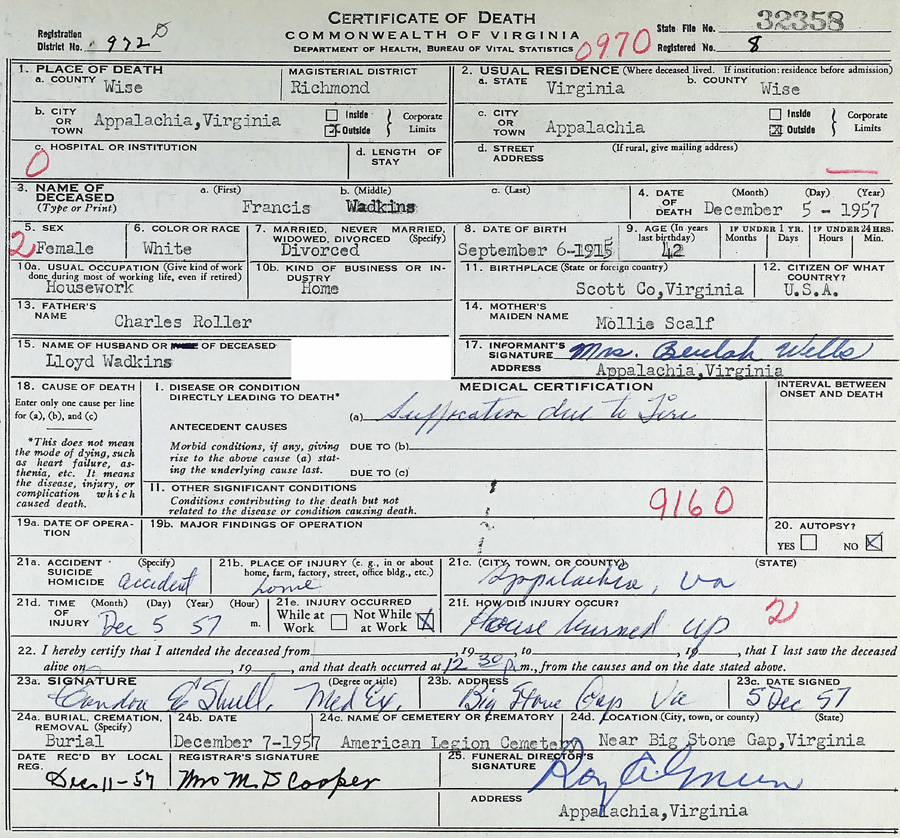 CERTIFICATE OF DEATH
COMMONWEALTH OF VIRGINIA
DEPARTMENT OF HEALTH, BUREAU OF VITAL STATISTICS
Registration District No. 972 D
0970
State File No. 32358
Registered No. 8
1. PLACE OF DEATH
a. COUNTY Wise
MAGISTERIAL DISTRICT Richmond
2. USUAL RESIDENCE (Where deceased lived. If institution: residence before admission)
a. STATE Virginia
b. COUNTY Wise
b. CITY OR TOWN Appalachia,Virginia
Inside
Outside
Corporate Limits
c. CITY OR TOWN Appalachia
Inside
Outside
Corporate Limits
c. HOSPITAL OR INSTITUTION
0
d. LENGTH OF STAY
d. STREET ADDRESS (If rural, give mailing address)
3. NAME OF DECEASED (Type or Print)
a. (First) b. (Middle) c. (Last)
Francis Wadkins
4. DATE OF DEATH (Month) (Day) (Year)
December 5 - 1957
5. SEX
2 Female
6. COLOR OR RACE
White
7. MARRIED, NEVER MARRIED, WIDOWED, DIVORCED (Specify)
Divorced
8. DATE OF BIRTH
September 6-1915
9. AGE (In years last birthday)
42
IF UNDER 1 YR.
Months Days
IF UNDER 24 HRS.
Hours Min.
10a. USUAL OCCUPATION (Give kind of work done during most of working life, even if retired)
Housework
10b. KIND OF BUSINESS OR INDUSTRY
Home
11. BIRTHPLACE (State or foreign country)
Scott Co,Virginia
12. CITIZEN OF WHAT COUNTRY?
U.S.A.
13. FATHER'S NAME
Charles Roller
14. MOTHER'S MAIDEN NAME
Mollie Scalf
15. NAME OF HUSBAND OR OF DECEASED
Lloyd Wadkins
17. INFORMANT'S SIGNATURE Mrs. Beulah Wells
ADDRESS Appalachia,Virginia
18. CAUSE OF DEATH
Enter only one cause per line for (a), (b), and (c)
*This does not mean the mode of dying, such as heart failure, asthenia, etc. It means the disease, injury, or complication which caused death.
MEDICAL CERTIFICATION
INTERVAL BETWEEN ONSET AND DEATH
I. DISEASE OR CONDITION DIRECTLY LEADING TO DEATH*
(a) Suffocation due to Fire
ANTECEDENT CAUSES
Morbid conditions, if any, giving rise to the above cause (a) stating the underlying cause last.
DUE TO (b)
DUE TO (c)
II. OTHER SIGNIFICANT CONDITIONS
Conditions contributing to the death but not related to the disease or condition causing death.
9160
19a. DATE OF OPERATION
19b. MAJOR FINDINGS OF OPERATION
20. AUTOPSY?
YES NO
21a. ACCIDENT SUICIDE HOMICIDE (Specify)
accident
21b. PLACE OF INJURY (e. g., in or about home, farm, factory, street, office bldg., etc.)
home
21c. (CITY, TOWN, OR COUNTY) (STATE)
Appalachia, Va
21d. TIME OF INJURY (Month) (Day) (Year) (Hour)
Dec 5 57 m.
21e. INJURY OCCURRED
While at Work
Not While at Work
21f. HOW DID INJURY OCCUR?
House burned up
2
22. I hereby certify that I attended the deceased from , 19 , to , 19 , that I last saw the deceased
alive on , 19 , and that death occurred at 12 30 p.m., from the causes and on the date stated above.
23a. SIGNATURE (Degree or title)
Shull, Med Ex.
23b. ADDRESS
Big Stone Gap Va
23c. DATE SIGNED
5 Dec 57
24a. BURIAL, CREMATION, REMOVAL (Specify)
Burial
24b. DATE
December 7-1957
24c. NAME OF CEMETERY OR CREMATORY
American Legion Cemetery
24d. LOCATION (City, town, or county) (State)
Near Big Stone Gap,Virginia
DATE REC'D BY LOCAL REG.
Dec-11-57
REGISTRAR'S SIGNATURE
Mrs M. D Cooper
25. FUNERAL DIRECTOR'S SIGNATURE
Roy A
ADDRESS
Appalachia,Virginia